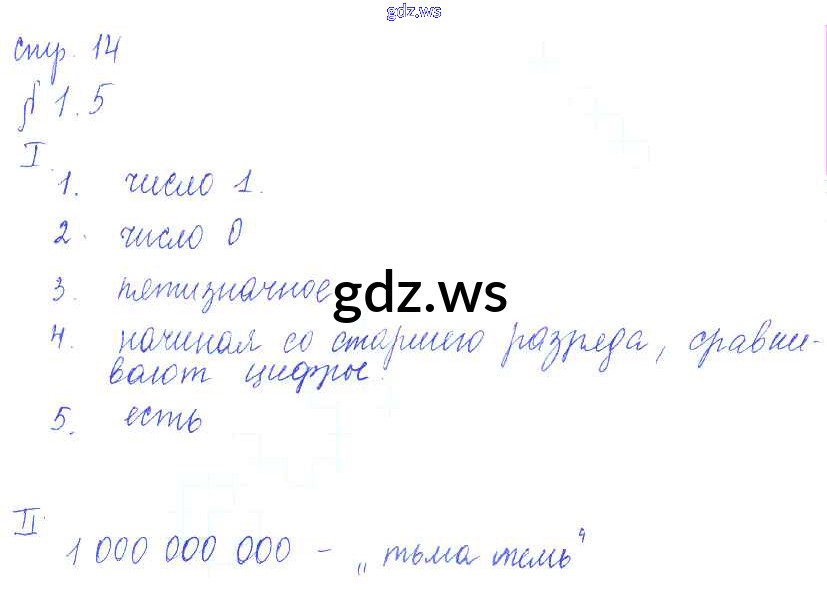 gdz.ws
стр. 14
§ 1.5
I.
1. число 1.
2. число 0
3. пятизначное
gdz.ws
4. начиная со старшего разряда, сравни-
вают цифры.
5. есть
II
1 000 000 000 - „тьма темь“